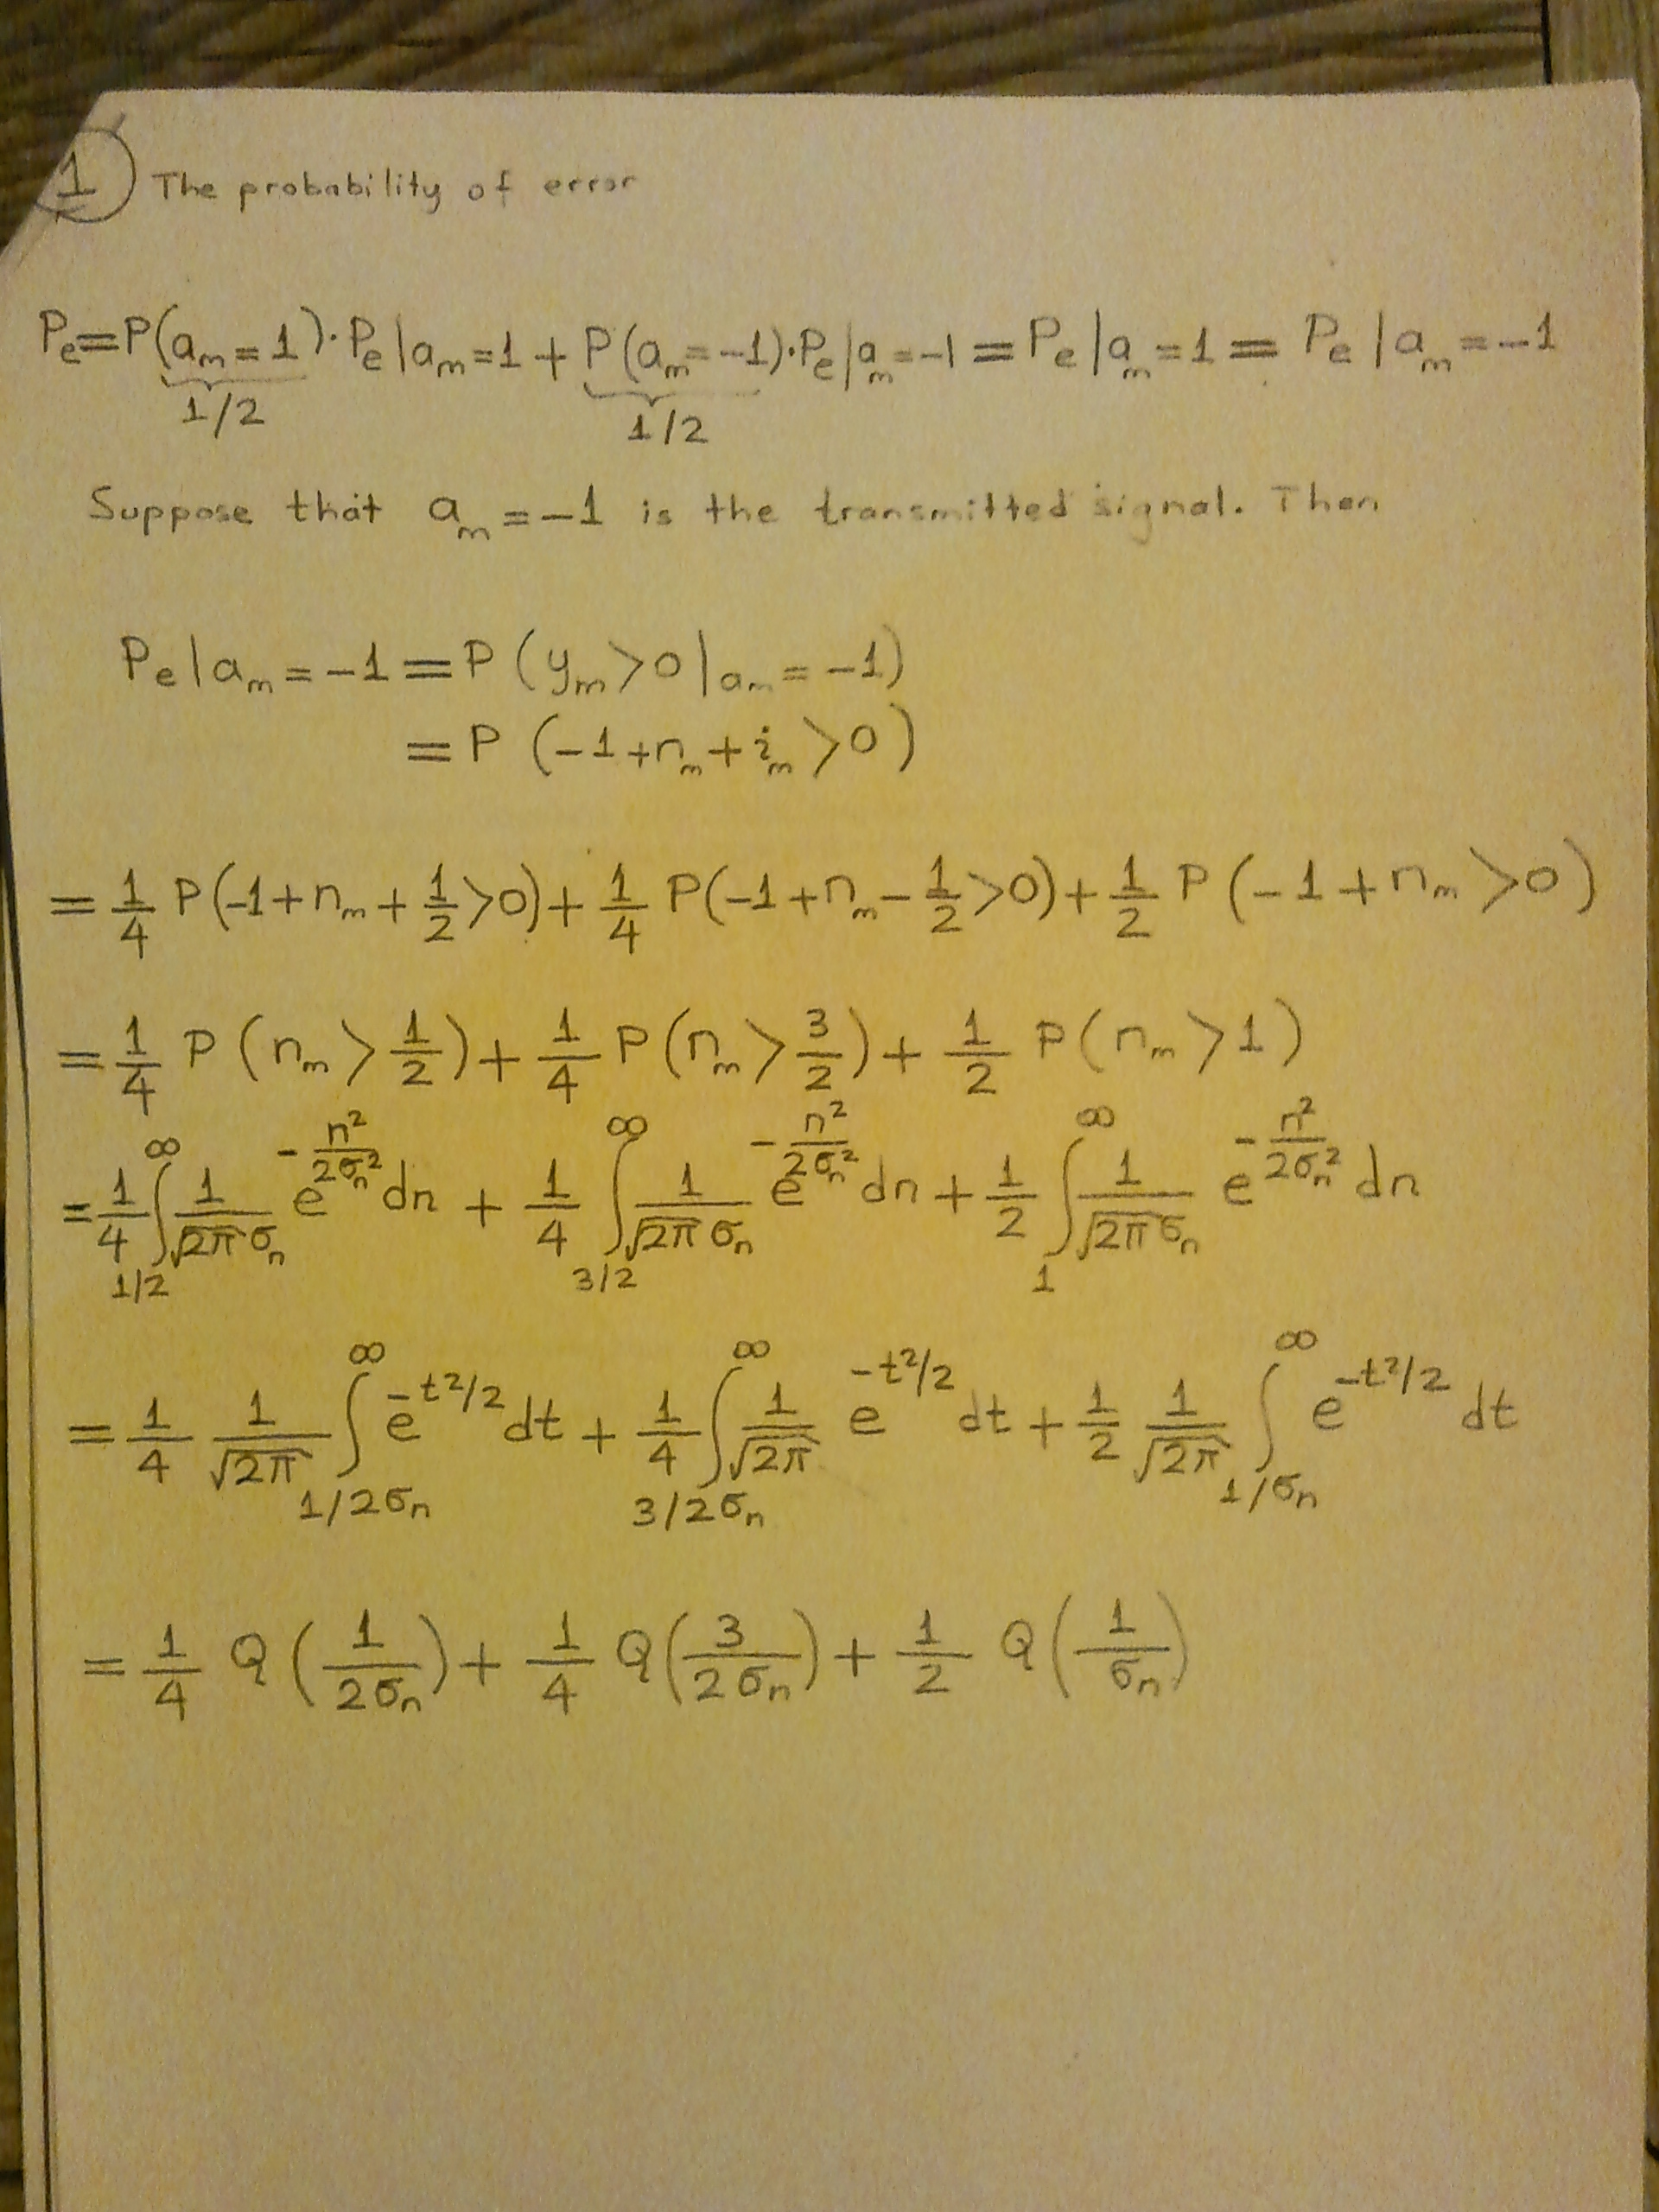 1 The probability of error
Pe=P(am=1)·Pe|am=1+P(am=-1)·Pe|am=-1=Pe|am=1=Pe|am=-1
1/2 1/2
Suppose that am=-1 is the transmitted signal. Then
Pe|am=-1=P(ym>0|am=-1)
=P(-1+nm+im>0)
=1/4 P(-1+nm+1/2>0)+1/4 P(-1+nm-1/2>0)+1/2 P(-1+nm>0)
=1/4 P(nm>1/2)+1/4 P(nm>3/2)+1/2 P(nm>1)
=1/4 ∫_{1/2}^{∞} 1/(√2π σn) e^{-n²/2σn²} dn + 1/4 ∫_{3/2}^{∞} 1/(√2π σn) e^{-n²/2σn²} dn + 1/2 ∫_{1}^{∞} 1/(√2π σn) e^{-n²/2σn²} dn
=1/4 1/√2π ∫_{1/2σn}^{∞} e^{-t²/2} dt + 1/4 ∫_{3/2σn}^{∞} 1/√2π e^{-t²/2} dt + 1/2 1/√2π ∫_{1/σn}^{∞} e^{-t²/2} dt
=1/4 Q(1/2σn)+1/4 Q(3/2σn)+1/2 Q(1/σn)